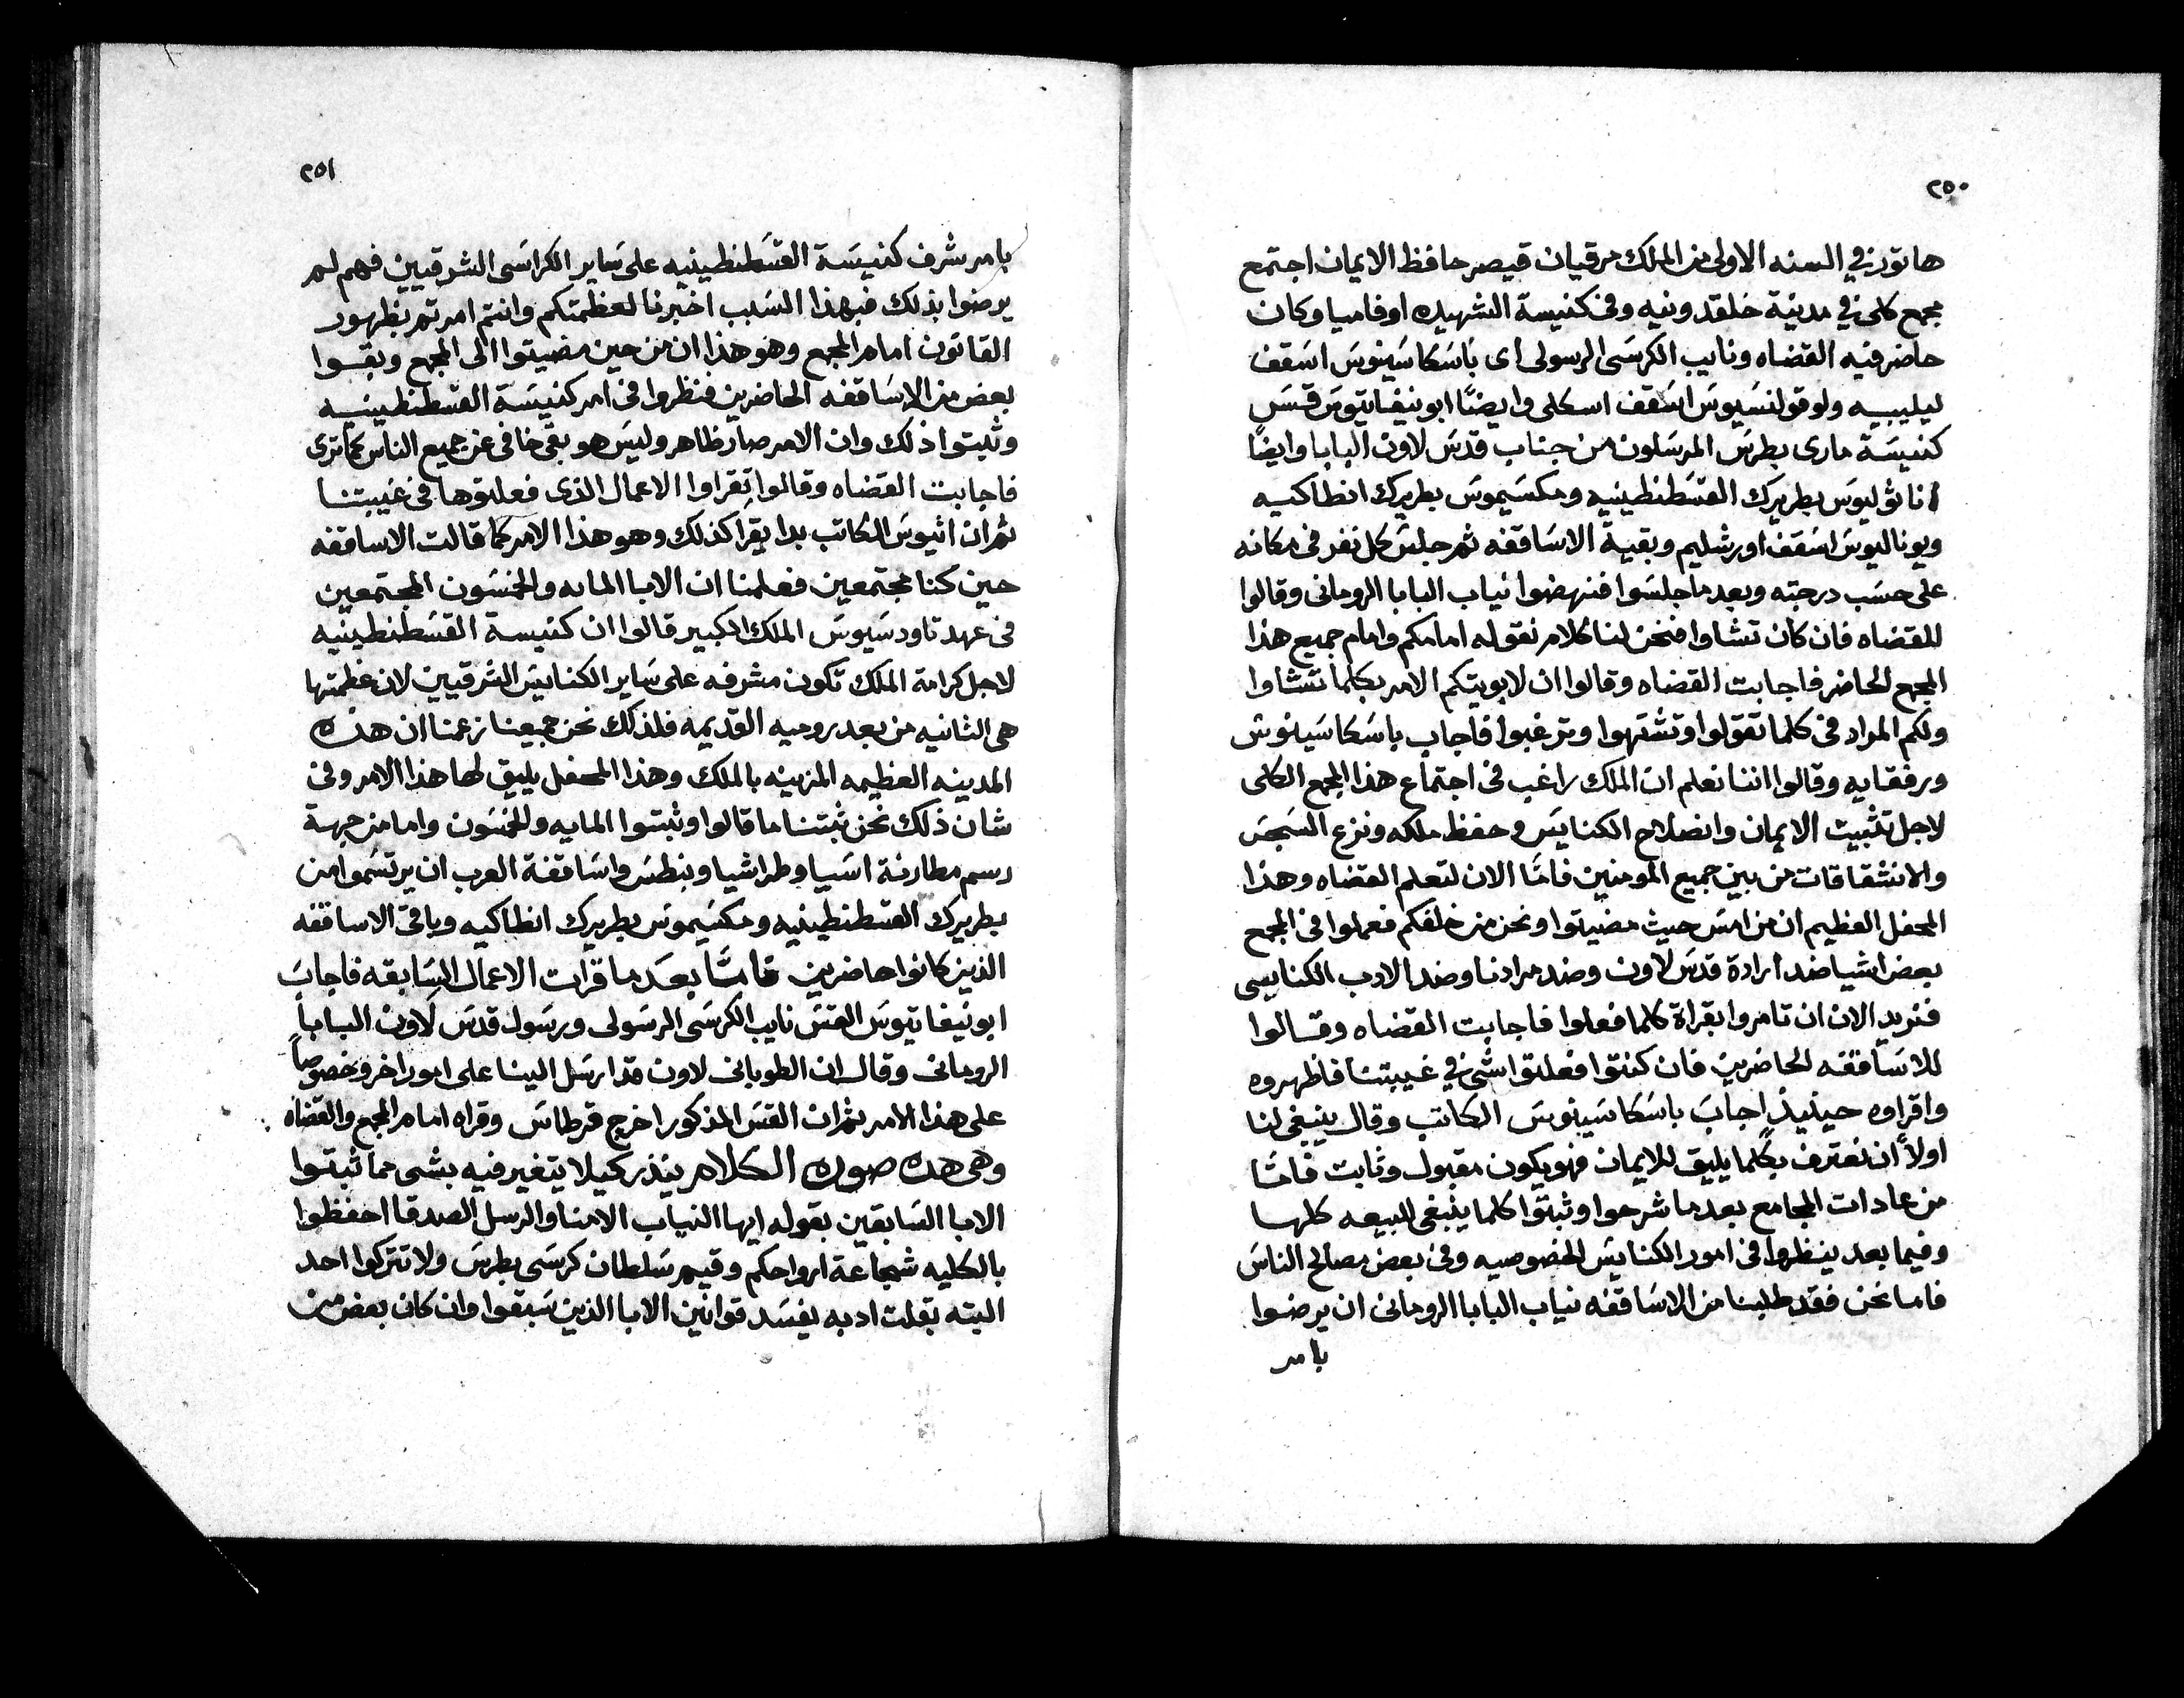 ٢٥٠
هاتور في السنه الاولى من الملك مرقيان قيصر حافظ الايمان اجتمع
مجمع كلى في مدينة خلقدونيه وفى كنيسة الشهيده اوفاميا وكان
حاضر فيه القضاه ونايب الكرسى الرسولى اى باسكاسينوس اسقف
ليليبيه ولوقولنسيوس اسقف اسكلى وايضًا ابونيفاتيوس قس
كنيسة مارى بطرس المرسلون من جناب قدس لاون البابا وايضًا
اناثوليوس بطريرك القسطنطينيه ومكسيموس بطريرك انطاكيه
ويوناليوس اسقف اورشليم وبقية الاساقفه ثم جلس كل نفر فى مكانه
على حسب درجته وبعد ما جلسوا فنهضوا نياب البابا الرومانى وقالوا
للقضاه فان كان تشاوا فنحن لنا كلام نقوله امامكم وامام جميع هذا
المجمع الحاضر فاجابت القضاه وقالوا ان لابويتكم الامر بكلما تشاوا
ولكم المراد فى كلما تقولوا وتشتهوا وترغبوا فاجاب باسكاسينوس
ورفقايه وقالوا اننا نعلم ان الملك راغب فى اجتماع هذا المجمع الكلى
لاجل تثبيت الايمان وانصلاح الكنايس وحفظ ملكه ونزع السجس
والانشقاقات من بين جميع المومنين فامّا الان لتعلم القضاه وهذا
المحفل العظيم ان من امس حيث مضيتوا ونحن من خلفكم فعملوا فى المجمع
بعض اشيا ضد ارادة قدس لاون وضد مرادنا وضد الادب الكنايسى
فنريد الان ان تامروا بقراة كلما فعلوا فاجابت القضاه وقالوا
للاساقفه الحاضرين فان كنتوا فعلتوا شى في غيبتنا فاظهروه
واقراوه حينيذٍ اجاب باسكاسينوس الكاتب وقال ينبغى لنا
اولاً ان نعترف بكلما يليق للايمان فهو يكون مقبول وثابت فامّا
من عادات المجامع بعد ما شرحوا وثبتوا كلما ينبغى للبيعه كلها
وفيما بعد ينظروا فى امور الكنايس الخصوصيه وفى بعض مصالح الناس
فاما نحن فقد طلبنا من الاساقفه نياب البابا الرومانى ان يرضوا
بامر
٢٥١
بامر شرف كنيسة القسطنطينيه على ساير الكراسى الشرقيين فهم لم
يرضوا بذلك فبهذا السبب اخبرنا لعظمتكم وانتم امرتم بظهور
القانون امام المجمع وهو هذا ان من حين مضيتوا الى المجمع وبقوا
بعض من الاساقفه الحاضرين فنظروا فى امر كنيسة القسطنطينيه
وثبتوا ذلك وان الامر صار ظاهر وليس هو بقى خافى عن جميع الناس كما ترى
فاجابت القضاه وقالوا تقراوا الاعمال الذى فعلتوها فى غيبتنا
ثم ان اثيوس الكاتب بدا يقرا كذلك وهو هذا الامر كما قالت الاساقفه
حين كنا مجتمعين فعلمنا ان الابا المايه والخمسون المجتمعين
فى عهد تاودسيوس الملك الكبير قالوا ان كنيسة القسطنطينيه
لاجل كرامة الملك تكون مشرفه على ساير الكنايس الشرقيين لان عظمتها
هى الثانيه من بعد روميه القديمه فلذلك نحن جميعنا زعمنا ان هذه
المدينه العظيمه المزينه بالملك وهذا المحفل يليق لها هذا الامر وفى
شان ذلك نحن ثبتنا ما قالوا وثبتوا المايه والخمسون واما من جهة
رسم مطارنة اسيا وطراشيا وبنطس واساقفة العرب ان يرتسموا من
بطريرك القسطنطينيه ومكسيموس بطريرك انطاكيه وباقى الاساقفه
الذين كانوا حاضرين فامّا بعد ما قرات الاعمال السابقه فاجاب
ابونيفاتيوس القس نايب الكرسى الرسولى ورسول قدس لاون البابا
الرومانى وقال ان الطوبانى لاون قد ارسل الينا على امور اخر وخصوصاً
على هذا الامر ثم ان القس المذكور اخرج قرطاس وقراه امام المجمع والقضاه
وهى هذه صورة الكلام ينذر كيلا يتغير فيه بشى مما ثبتوا
الابا السابقين بقوله ايها النياب الامنا والرسل الصدقا احفظوا
بالكليه شجاعة ارواحكم وقيم سلطان كرسى بطرس ولا تتركوا احد
البته بقلت ادبه يفسد قوانين الابا الذين سبقوا وان كان بعض من